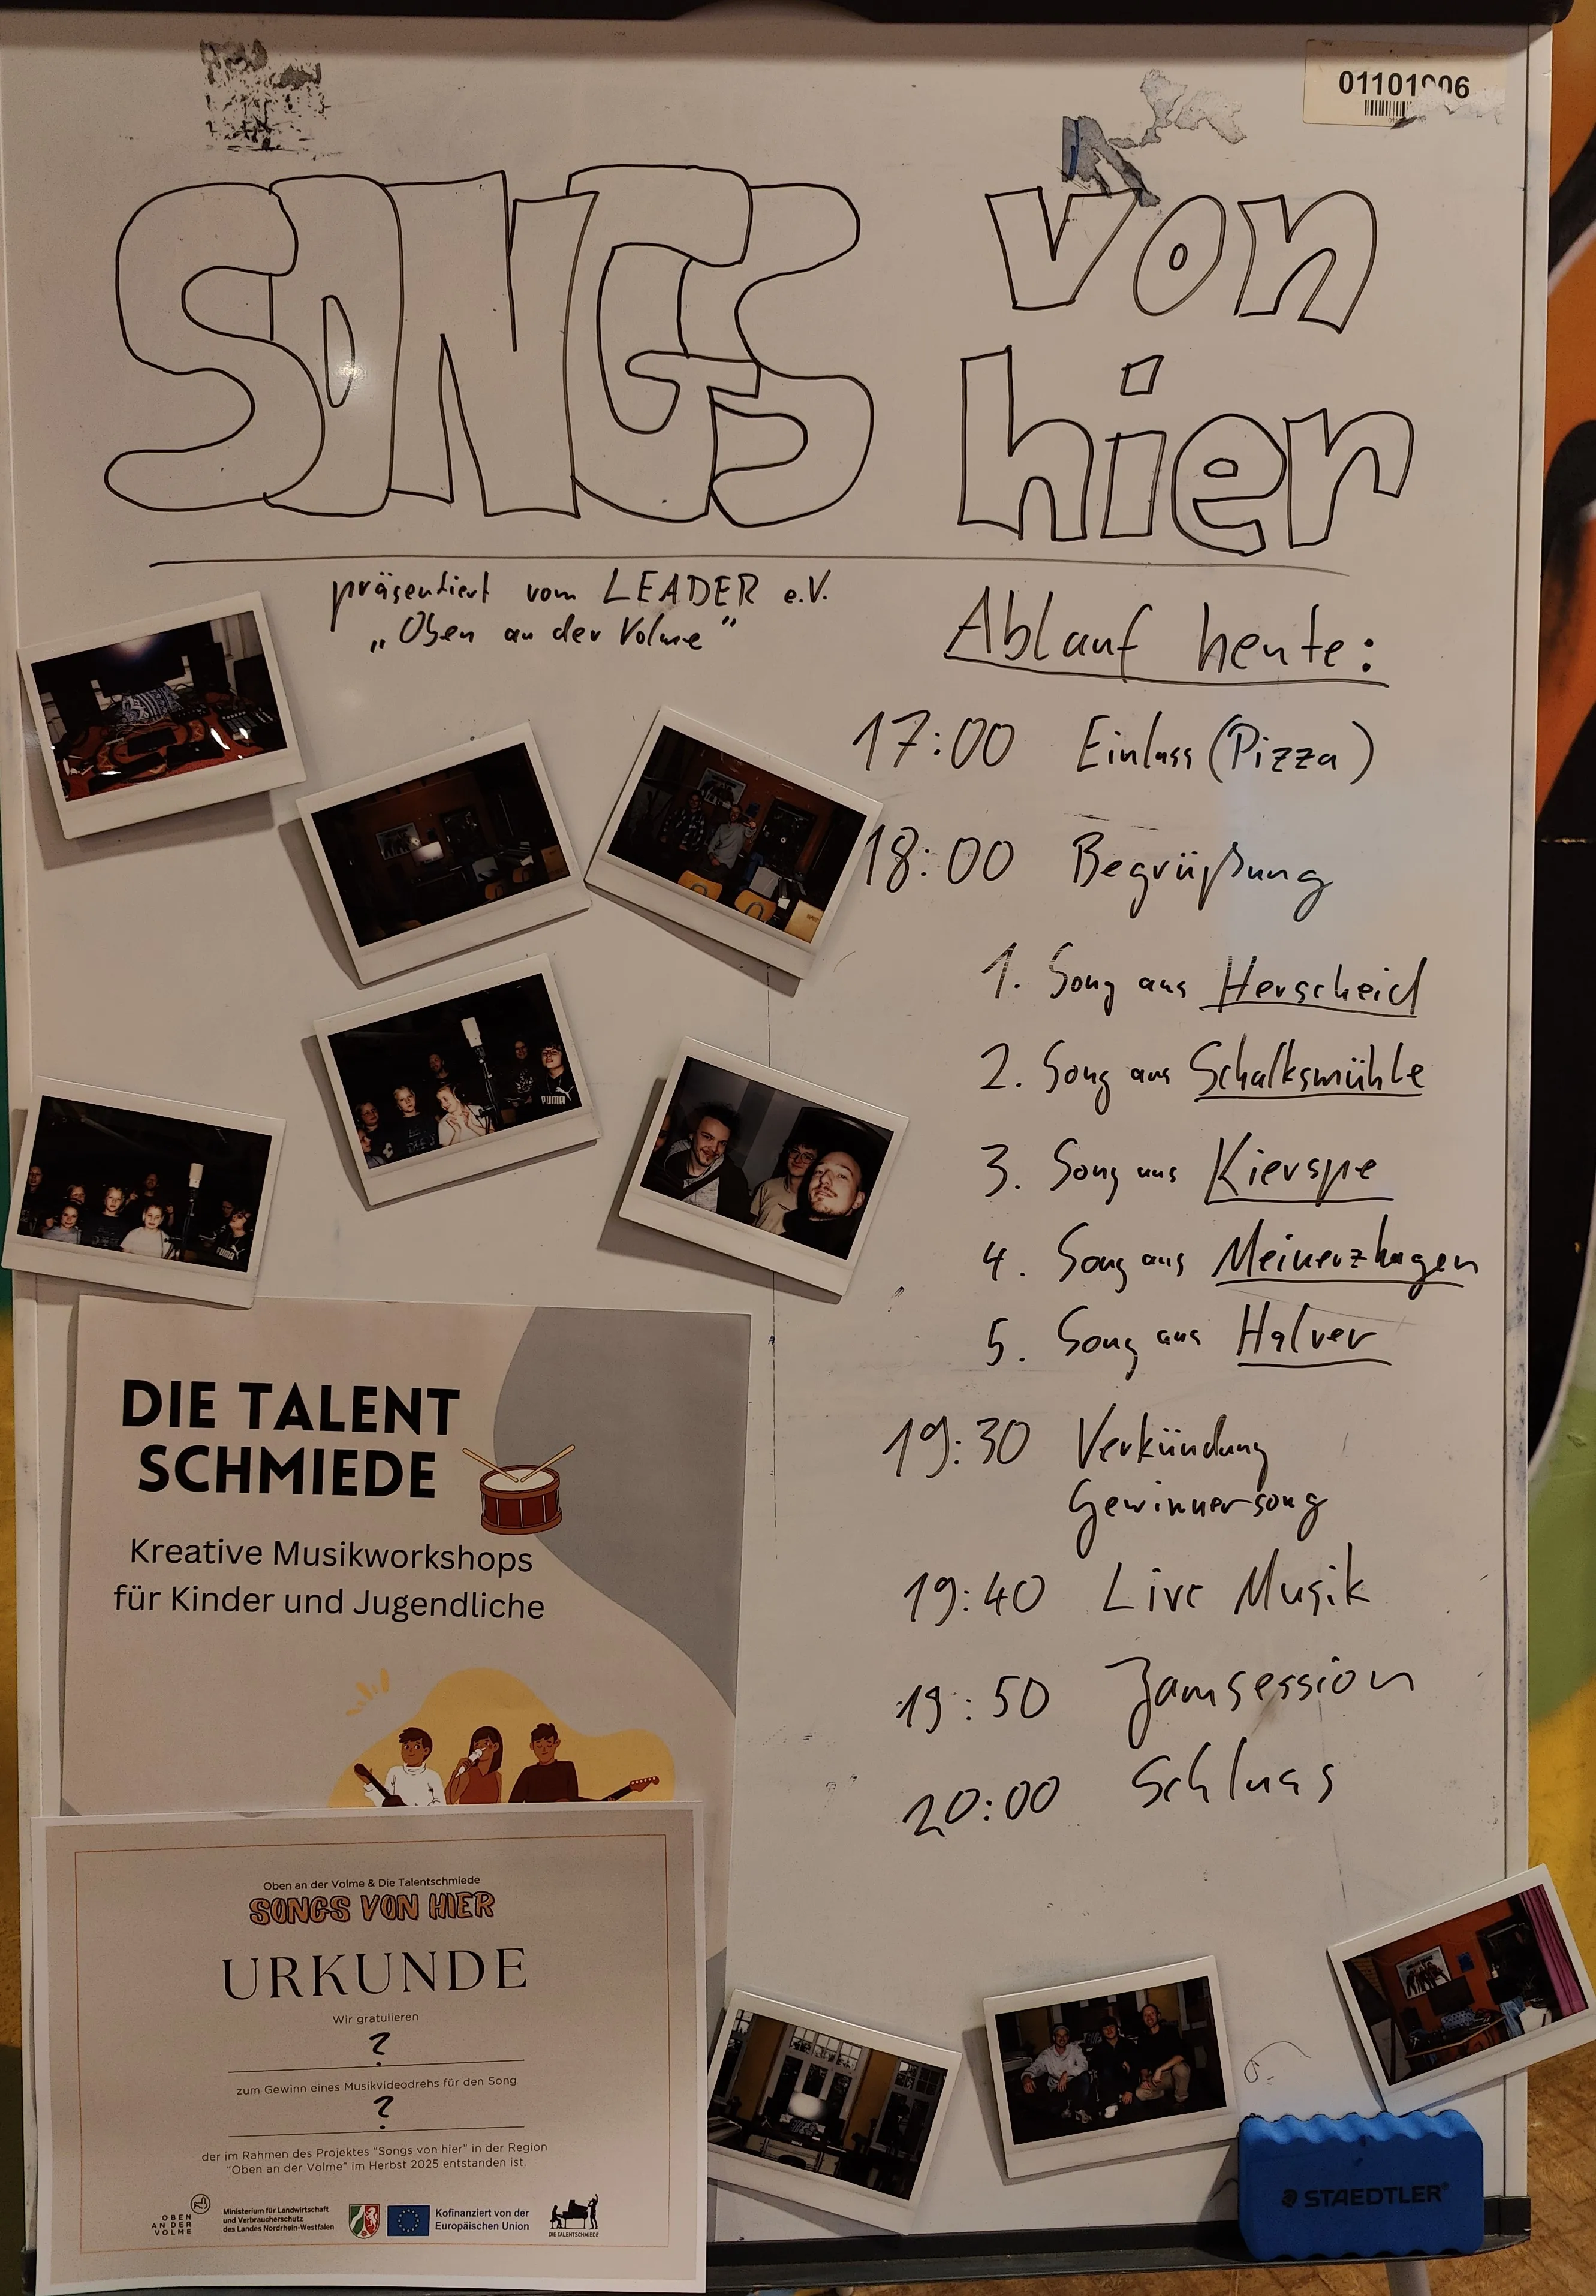 SONGS von
hier
präsentiert vom LEADER e.V.
„Oben an der Volme"
Ablauf heute:
17:00 Einlass (Pizza)
18:00 Begrüßung
1. Song aus Herscheid
2. Song aus Schalksmühle
3. Song aus Kierspe
4. Song aus Meinerzhagen
5. Song aus Halver
19:30 Verkündung
Gewinnersong
19:40 Live Musik
19:50 Jamsession
20:00 Schluss
PUMA
DIE TALENT
SCHMIEDE
Kreative Musikworkshops
für Kinder und Jugendliche
Oben an der Volme & Die Talentschmiede
SONGS VON HIER
URKUNDE
Wir gratulieren
?
zum Gewinn eines Musikvideodrehs für den Song
?
der im Rahmen des Projektes "Songs von hier" in der Region
"Oben an der Volme" im Herbst 2025 entstanden ist.
OBEN
AN DER
VOLME
Ministerium für Landwirtschaft
und Verbraucherschutz
des Landes Nordrhein-Westfalen
Kofinanziert von der
Europäischen Union
DIE TALENTSCHMIEDE
STAEDTLER